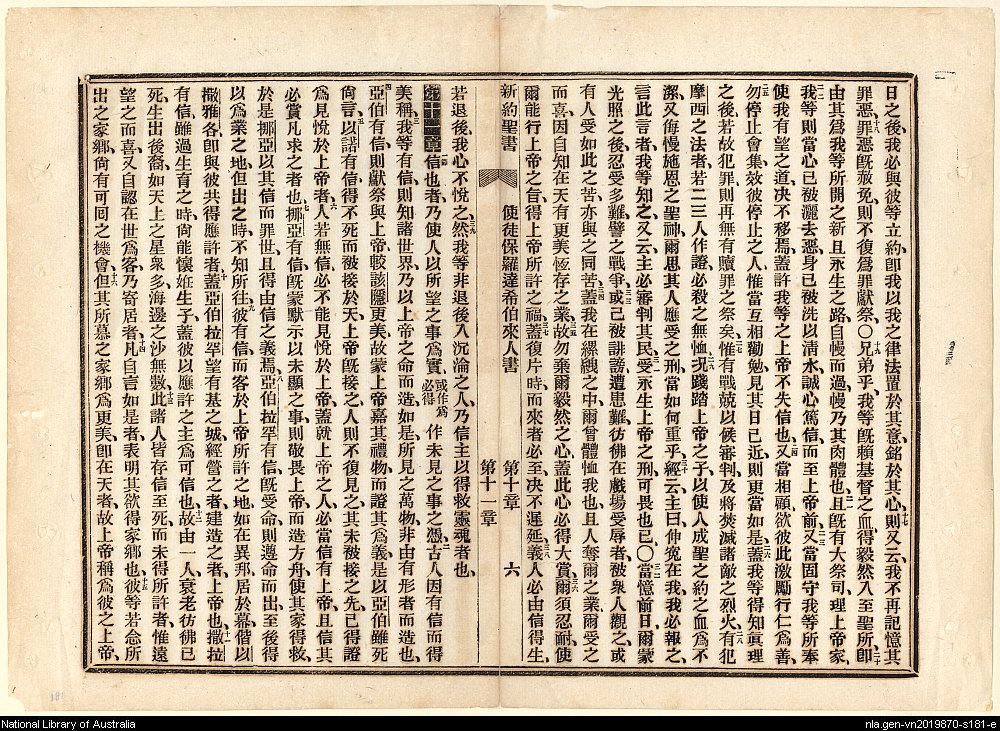 日之後、我必與彼等立約、卽我以我之律法置於其意、銘於其心、則又云、我不再記憶其
罪惡、罪惡旣赦免、則不復爲罪獻祭、〇兄弟乎、我等旣賴基督之血、得毅然入至聖所、卽
由其爲我等所開之新且永生之路、自幔而過、幔乃其肉體也、且旣有大祭司、理上帝家、
我等則當心已被灑去惡、身已被洗以清水、誠心篤信、而至上帝前、又當固守我等所奉
使我有望之道、決不移焉、蓋許我等之上帝、不失信也、又當相顧、欲彼此激勵行仁爲善、
勿停止會集、效彼停止之人、惟當互相勸勉、見其日已近、則更當如是、蓋我等得知眞理
之後、若故犯罪、則再無有贖罪之祭矣、惟有戰兢以候審判、及將焚滅諸敵之烈火、有犯
摩西之法者、若二三人作證、必殺之無恤、況踐踏上帝之子、以使人成聖之約之血爲不
潔、又侮慢施恩之聖神、爾思其人應受之刑、當如何重乎、經云、主曰、伸寃在我、我必報之、
言此言者、我等知之、又云、主必審判其民、受永生上帝之刑、可畏也已、〇當憶前日爾蒙
光照之後、忍受多難、譬之戰爭、或己被誹謗、遭患難、彷彿在戲場受辱者、被衆人觀之、或
有人受如此之苦、亦與之同苦、蓋我在縲絏之中、爾曾體恤我也、且人奪爾之業、爾受之
而喜、因自知在天有更美恆存之業、故勿棄爾毅然之心、蓋此心必得大賞、爾須忍耐、使
爾能行上帝之旨、得上帝所許之福、蓋復片時、而來者必至、決不遲延、義人必由信得生、
新約聖書 使徒保羅達希伯來人書 第十章 六
第十一章
若退後、我心不悅之、然我等非退後入沉淪之人、乃信主以得救靈魂者也、
第十一章 信也者、乃使人以所望之事爲實、或作爲必得 作未見之事之憑、古人因有信而得
美稱、我等有信、則知諸世界乃以上帝之命而造、如是、所見之萬物、非由有形者而造也、
亞伯有信、則獻祭與上帝、較該隱更美、故蒙上帝嘉其禮物、而證其爲義、是以亞伯雖死
尙言、以諾有信、得不死而被接於天、上帝旣接之、人則不復見之、其未被接之先、已得證
爲見悅於上帝者、人若無信、必不能見悅於上帝、蓋就上帝之人、必當信有上帝、且信其
必賞凡求之者也、挪亞有信、旣蒙默示以未顯之事、則敬畏上帝、而造方舟、使其家得救、
於是挪亞以其信而罪世、且得由信之義焉、亞伯拉罕有信、旣受命、則遵命而出、至後得
以爲業之地、但出之時、不知所往、彼有信而客於上帝所許之地、如在異邦、居於幕、偕以
撒雅各、卽與彼共得應許者、蓋亞伯拉罕望有基之城、經營之者、建造之者、上帝也、撒拉
有信、雖過生育之時、尙能懷妊生子、蓋彼以應許之主爲可信也、故由一人衰老彷彿已
死、生出後裔、如天上之星衆多、海邊之沙無數、此諸人皆存信至死、而未得所許者、惟遠
望之而喜、又自認在世爲客、乃寄居者、凡自言如是者、表明其欲得家鄉也、彼等若念所
出之家鄉、尙有可回之機會、但其所慕之家鄉爲更美、卽在天者、故上帝稱爲彼之上帝、
181
National Library of Australia
nla.gen-vn2019870-s181-e